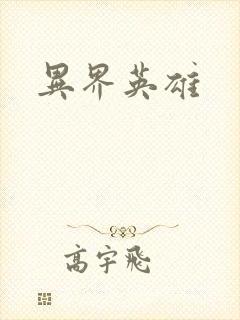 異界英雄
高宇飛